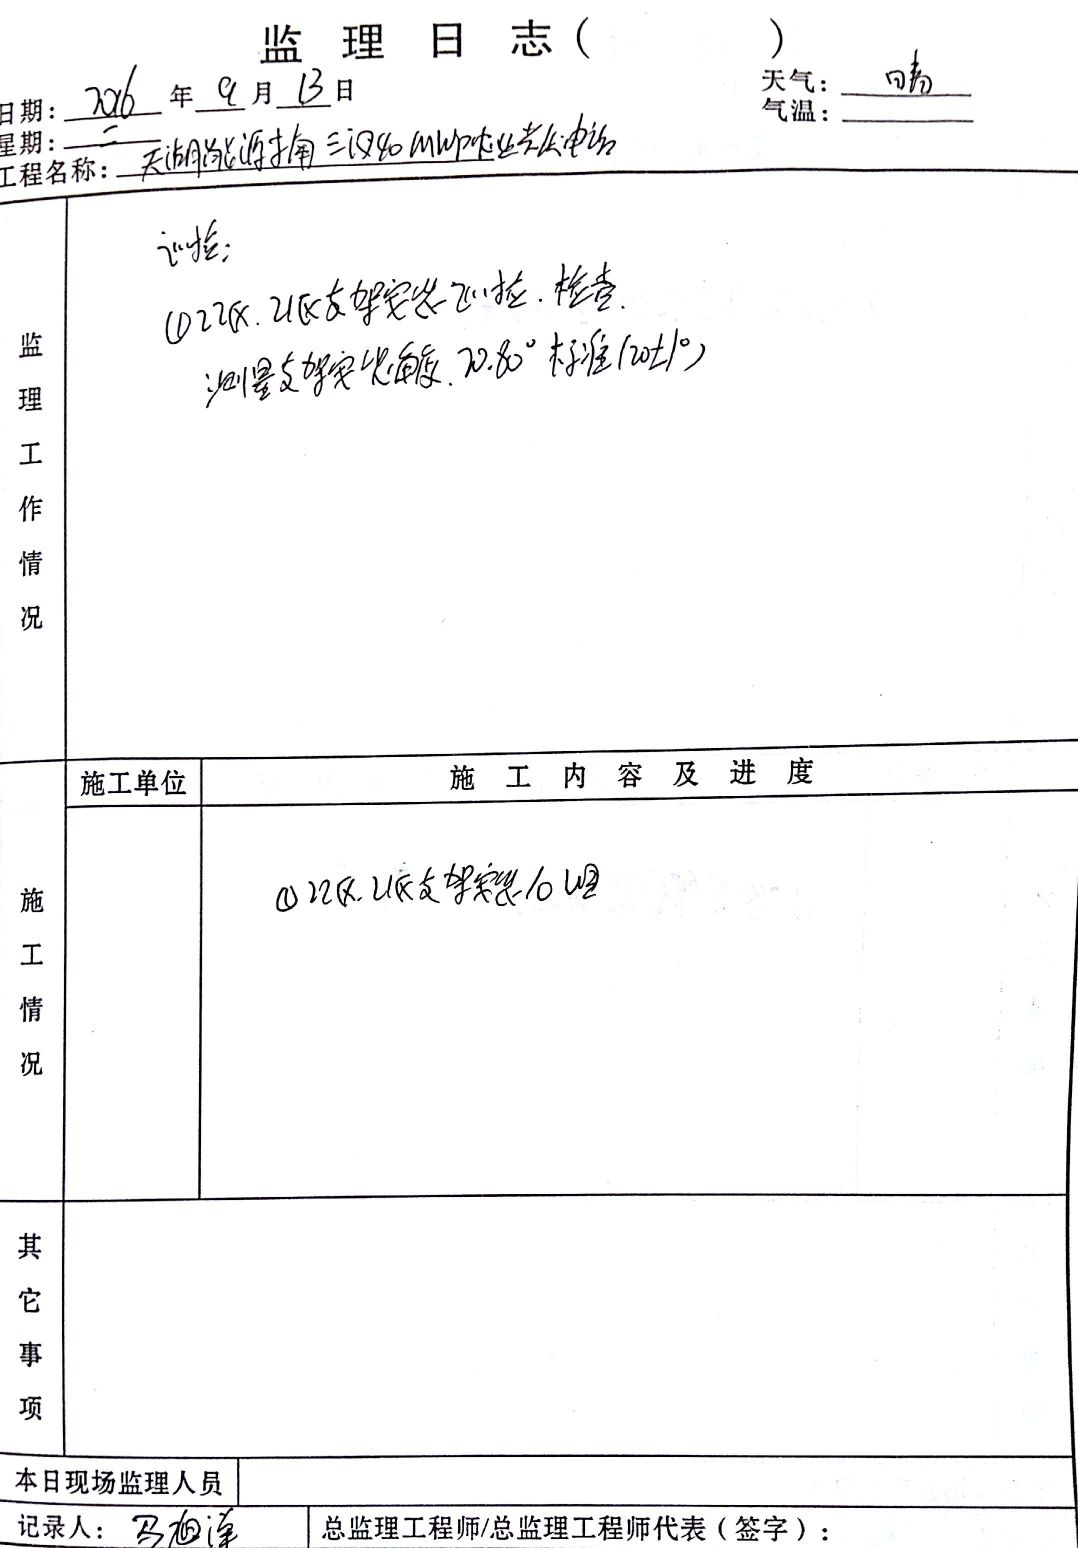 监理日志(  )
日期: 2016 年 9 月 13 日
天气: 晴
星期: 二
气温:
工程名称: 天湖能源 三汊40MWP农业光伏电站
监理工作情况
巡检:
①22区.21区支架安装巡检.检查.
测量支架安装角度.20.80°标准(20±1°)
施工单位
施工内容及进度
施工情况
①22区.21区支架安装10组
其它事项
本日现场监理人员
记录人: 马旭
总监理工程师/总监理工程师代表(签字):